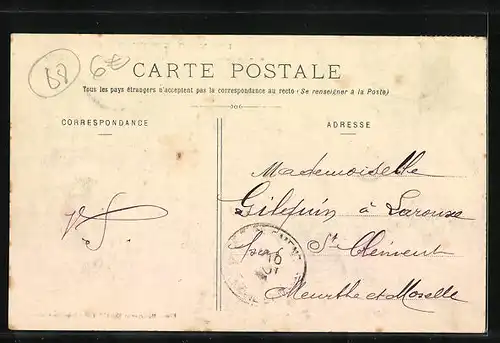 88 6€
CARTE POSTALE
Tous les pays étrangers n'acceptent pas la correspondance au recto (Se renseigner à la Poste)
CORRESPONDANCE
ADRESSE
Mademoiselle
à Laronxe
par St Clément
Meurthe et Moselle
10